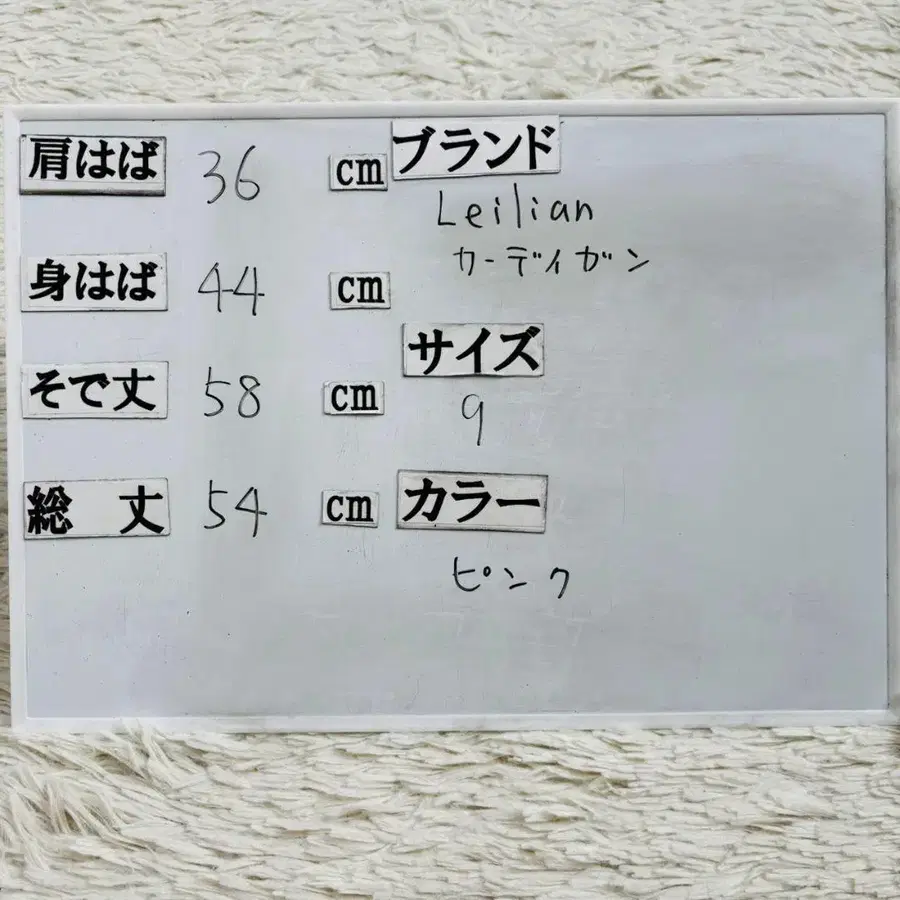 肩はば 36 cm
身はば 44 cm
そで丈 58 cm
総 丈 54 cm
ブランド
Leilian
カーディガン
サイズ
9
カラー
ピンク